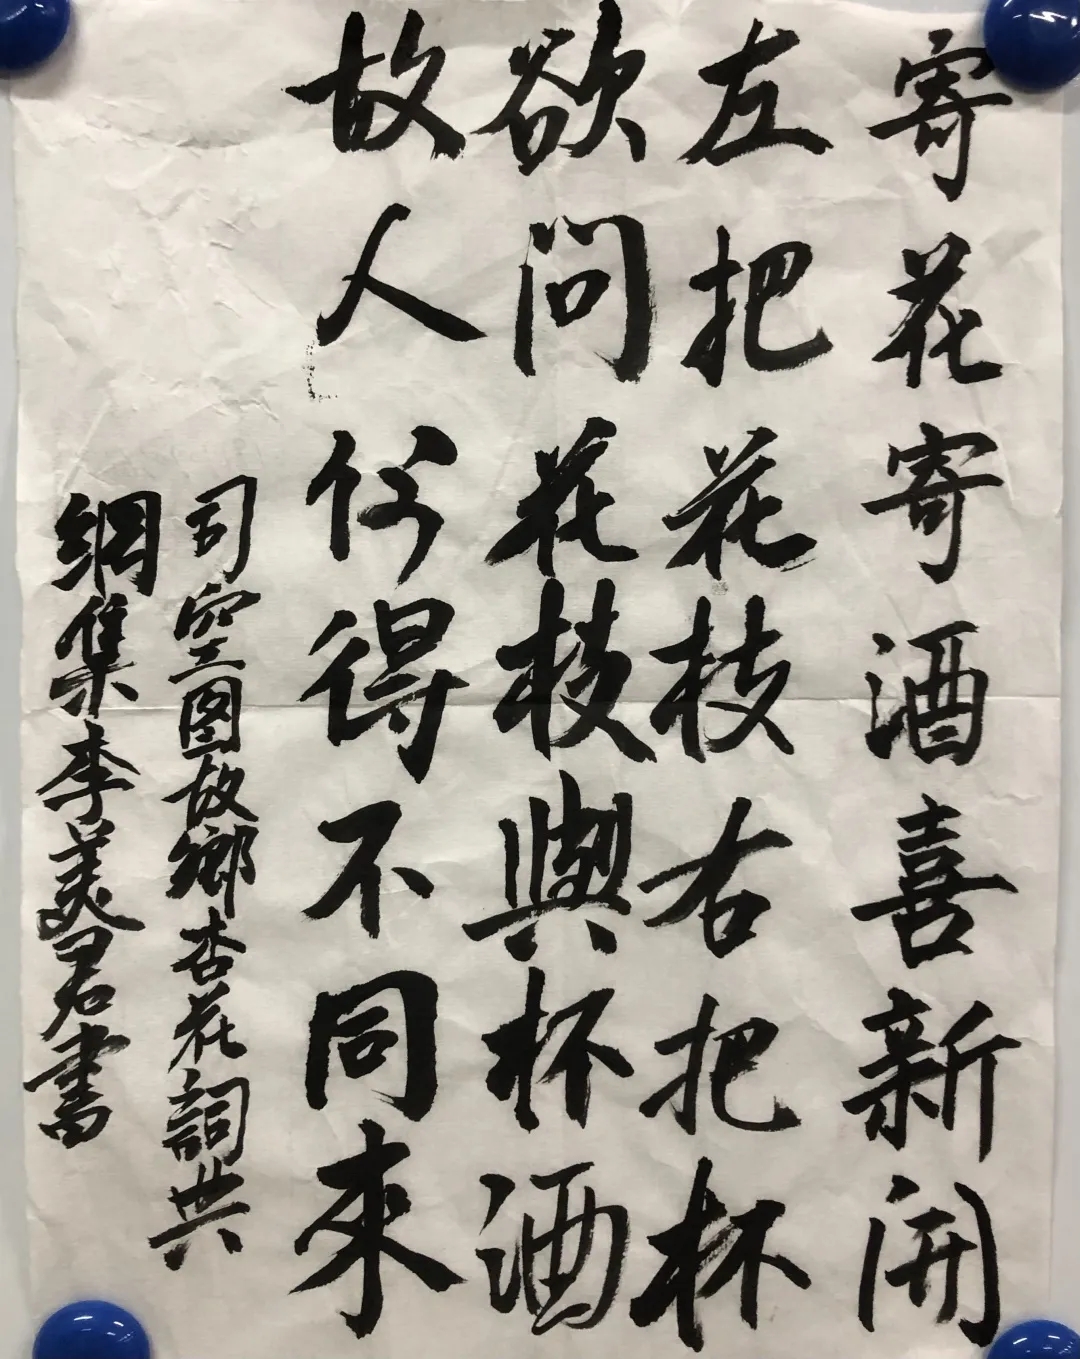 寄花寄酒喜新開
左把花枝右把杯
欲問花枝與杯酒
故人何得不同來
司空图故鄉杏花詞共
網集李美君書